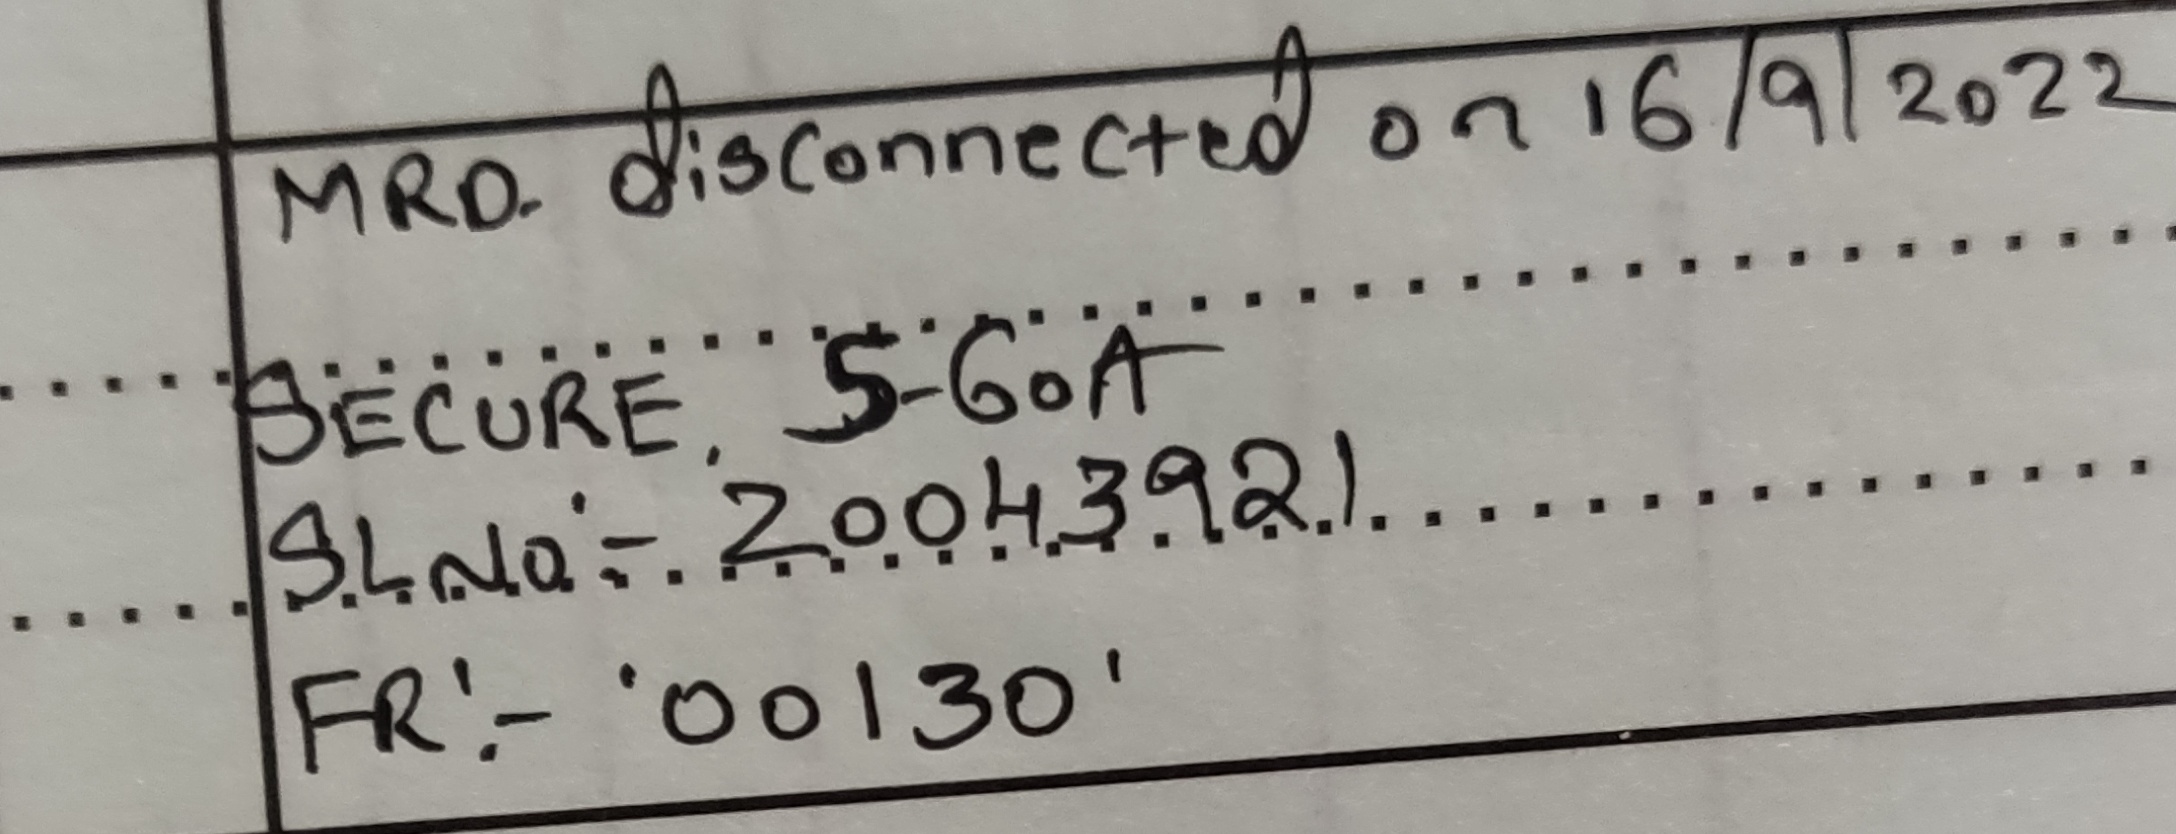 MRD. disconnected on 16/9/2022
SECURE, 5-60A
SL.No:- 20043921
FR:- '00130'